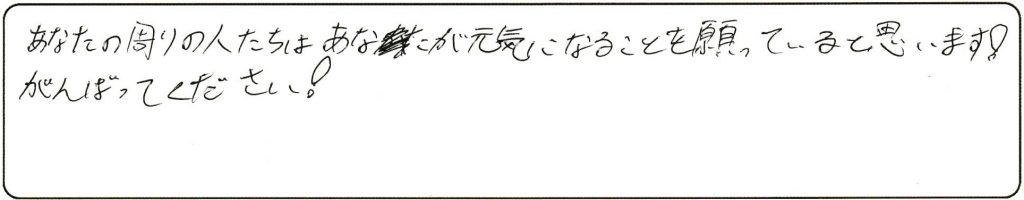 あなたの周りの人たちはあなたが元気になることを願っていると思います!
がんばってください!